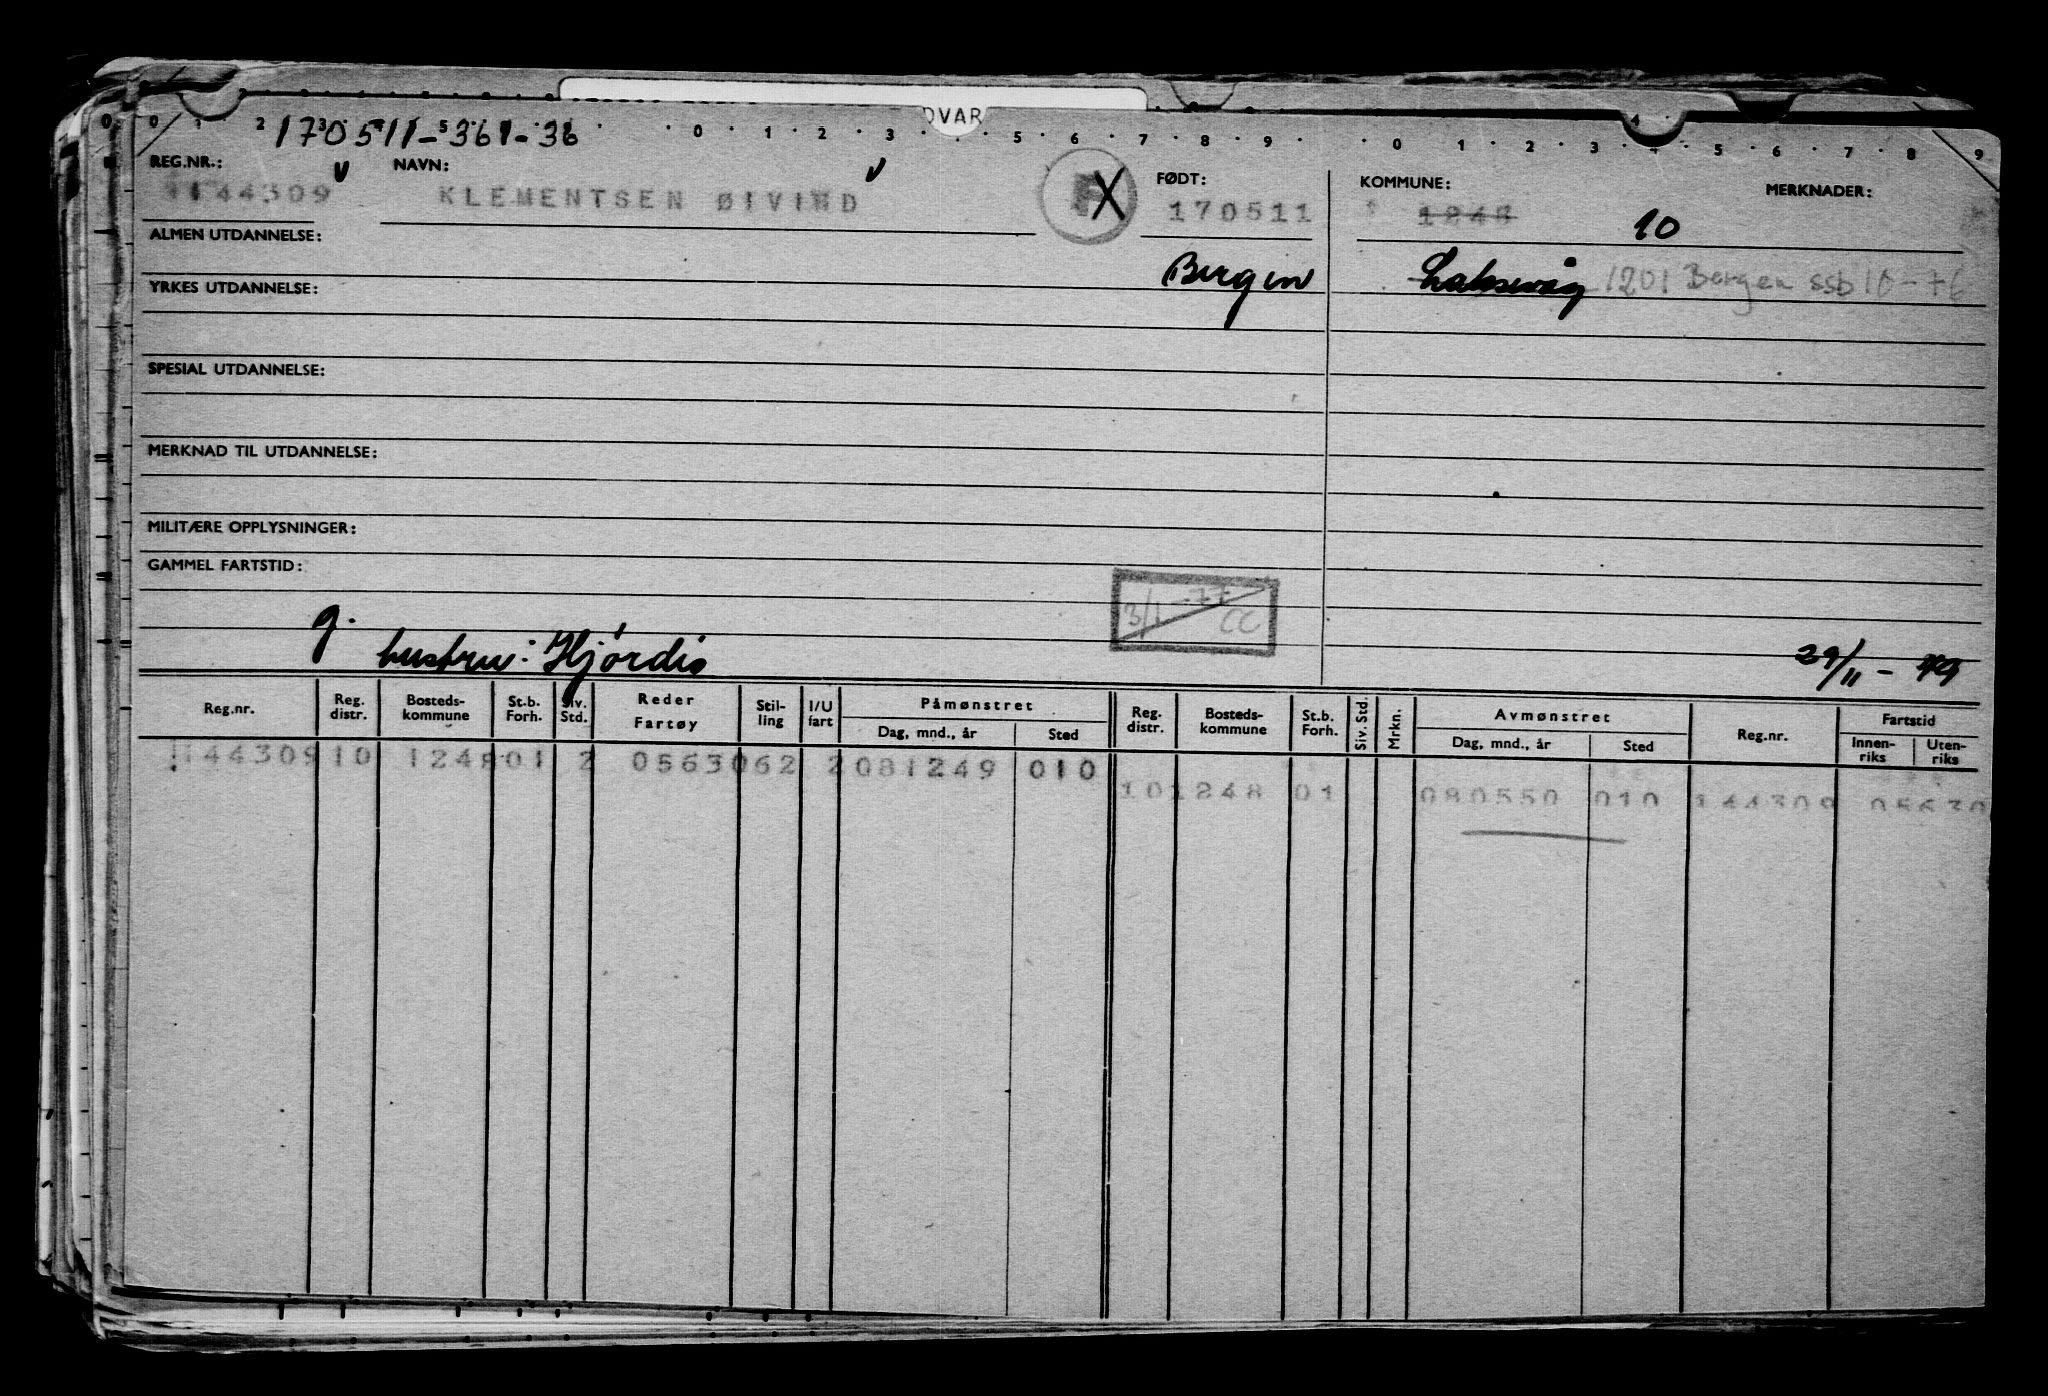 DVAR
0 1 2 0 1 2 3 5 6 7 8 9 0 1 2 3 4 5 6 7 8 9
170511-361-36
REG.NR.: NAVN: FØDT: KOMMUNE: MERKNADER:
144309 KLEMENTSEN ØIVIND F X 170511 1248 10
ALMEN UTDANNELSE:
Bergen Laksevåg 1201 Bergen ssb 10-76
YRKES UTDANNELSE:
SPESIAL UTDANNELSE:
MERKNAD TIL UTDANNELSE:
MILITÆRE OPPLYSNINGER:
GAMMEL FARTSTID:
3/1 -77 CC
g. hustru: Hjördis 29/11-
Reg.nr. Reg. distr. Bosteds-kommune St.b. Forh. Siv. Std. Reder Fartøy Stil-ling I/U fart Påmønstret Dag, mnd., år Sted Reg. distr. Bosteds-kommune St.b. Forh. Siv. Std. Mrkn. Avmønstret Dag, mnd., år Sted Reg.nr. Fartstid Innen-riks Uten-riks
144309 10 1248 01 2 0563062 2 081249 010
10 1248 01 080550 010 144309 05630